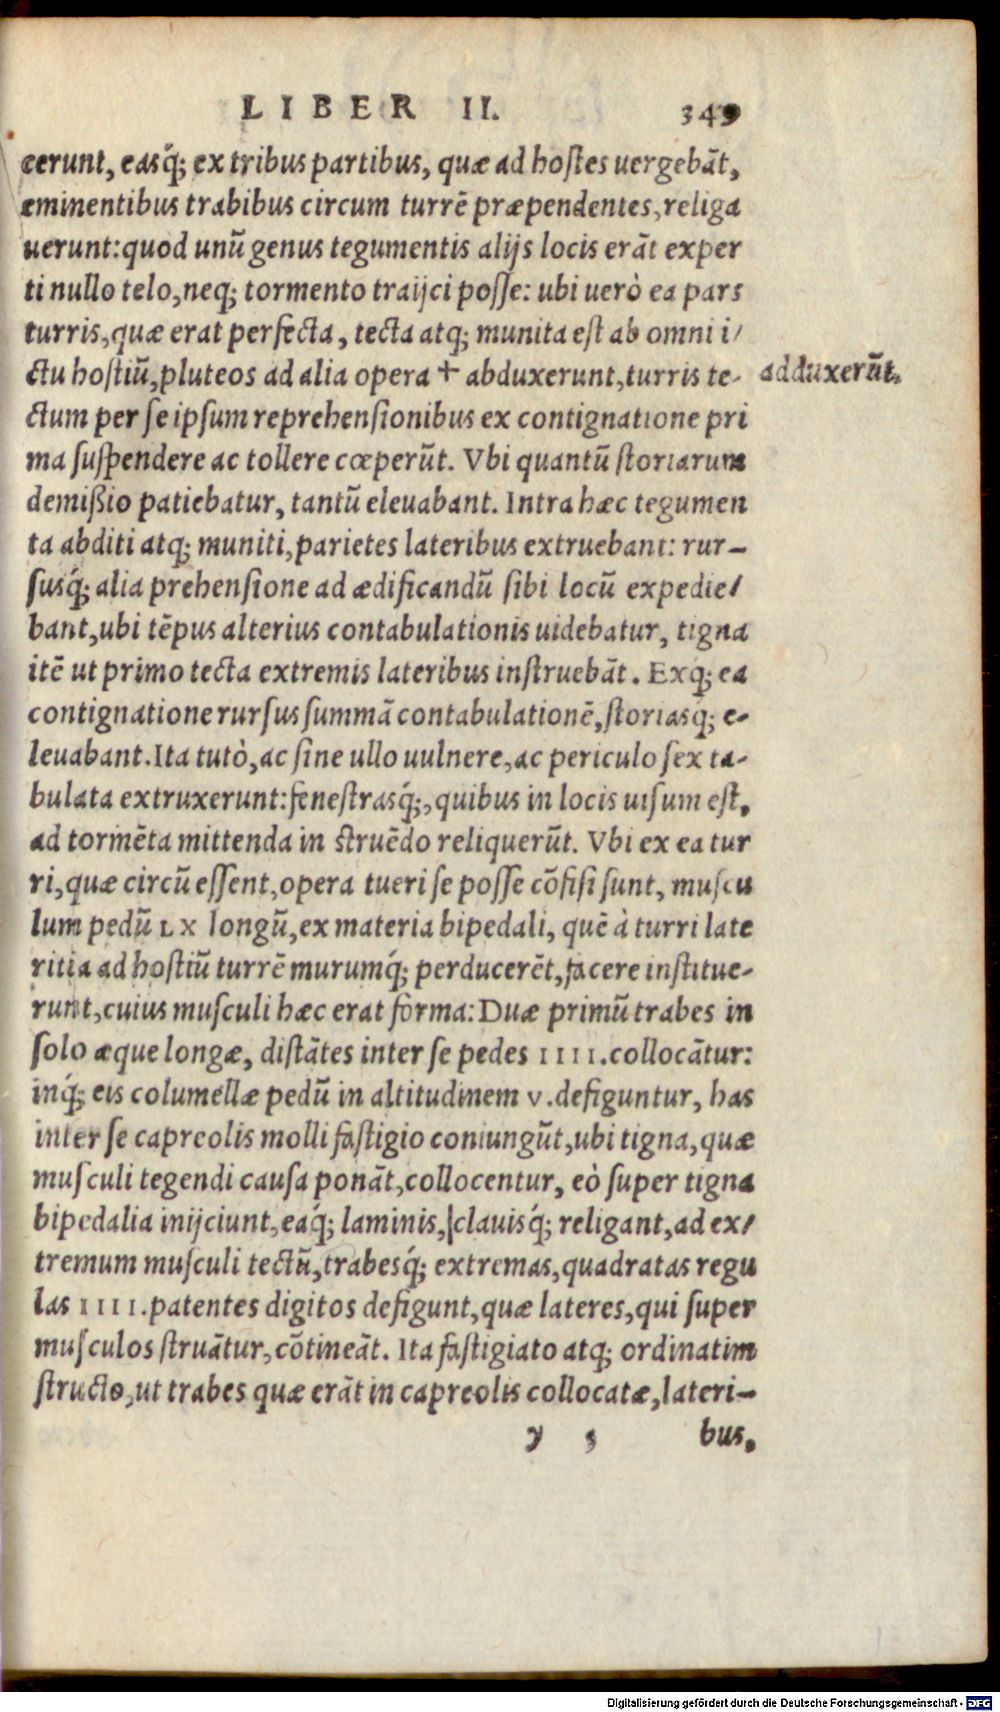 LIBER II. 349
cerunt, easq́; ex tribus partibus, quæ ad hostes uergebãt,
eminentibus trabibus circum turrẽ præpendentes, religa
uerunt: quod unũ genus tegumentis alijs locis erãt exper
ti nullo telo, neq; tormento traijci posse: ubi uerò ea pars
turris, quæ erat perfecta, tecta atq; munita est ab omni i/
ctu hostiũ, pluteos ad alia opera + abduxerunt, turris te- adduxerũt.
ctum per se ipsum reprehensionibus ex contignatione pri
ma suspendere ac tollere cœperũt. Vbi quantũ storiarum
demißio patiebatur, tantũ eleuabant. Intra hæc tegumen
ta abditi atq; muniti, parietes lateribus extruebant: rur-
susq́; alia prehensione ad ædificandũ sibi locũ expedie/
bant, ubi tẽpus alterius contabulationis uidebatur, tigna
itẽ ut primo tecta extremis lateribus instruebãt. Exq; ea
contignatione rursus summã contabulationẽ, storiasq́; e-
leuabant. Ita tutò, ac sine ullo uulnere, ac periculo sex ta-
bulata extruxerunt: fenestrasq́;, quibus in locis uisum est,
ad tormẽta mittenda in struẽdo reliquerũt. Vbi ex ea tur
ri, quæ circũ essent, opera tueri se posse cõfisi sunt, muscu
lum pedũ LX longũ, ex materia bipedali, quẽ à turri late
ritia ad hostiũ turrẽ murumq́; perducerẽt, facere institue-
runt, cuius musculi hæc erat forma: Duæ primũ trabes in
solo æque longæ, distãtes inter se pedes IIII. collocãtur:
inq́; eis columellæ pedũ in altitudinem V. defiguntur, has
inter se capreolis molli fastigio coniungũt, ubi tigna, quæ
musculi tegendi causa ponãt, collocentur, eò super tigna
bipedalia inijciunt, eaq́; laminis, clauisq́; religant, ad ex/
tremum musculi tectũ, trabesq́; extremas, quadratas regu
las IIII. patentes digitos defigunt, quæ lateres, qui super
musculos struãtur, cõtineãt. Ita fastigiato atq; ordinatim
structo, ut trabes quæ erãt in capreolis collocatæ, lateri-
y 3 bus,
Digitalisierung gefördert durch die Deutsche Forschungsgemeinschaft - DFG